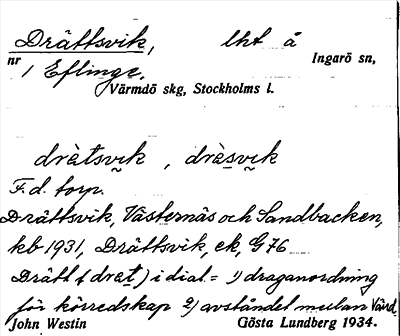 Drättsvik, lht å Ingarö sn,
nr 1 Eflinge.
Värmdö skg, Stockholms l.
drätsvik, dräsvik
F.d. torp.
Drättsvik, Västernäs och Sandbacken,
kb 1931, Drättsvik, ek, G 76
Drätt (drät) i dial. = 1) draganordning
för körredskap 2) avståndet mellan Värd.
John Westin Gösta Lundberg 1934.